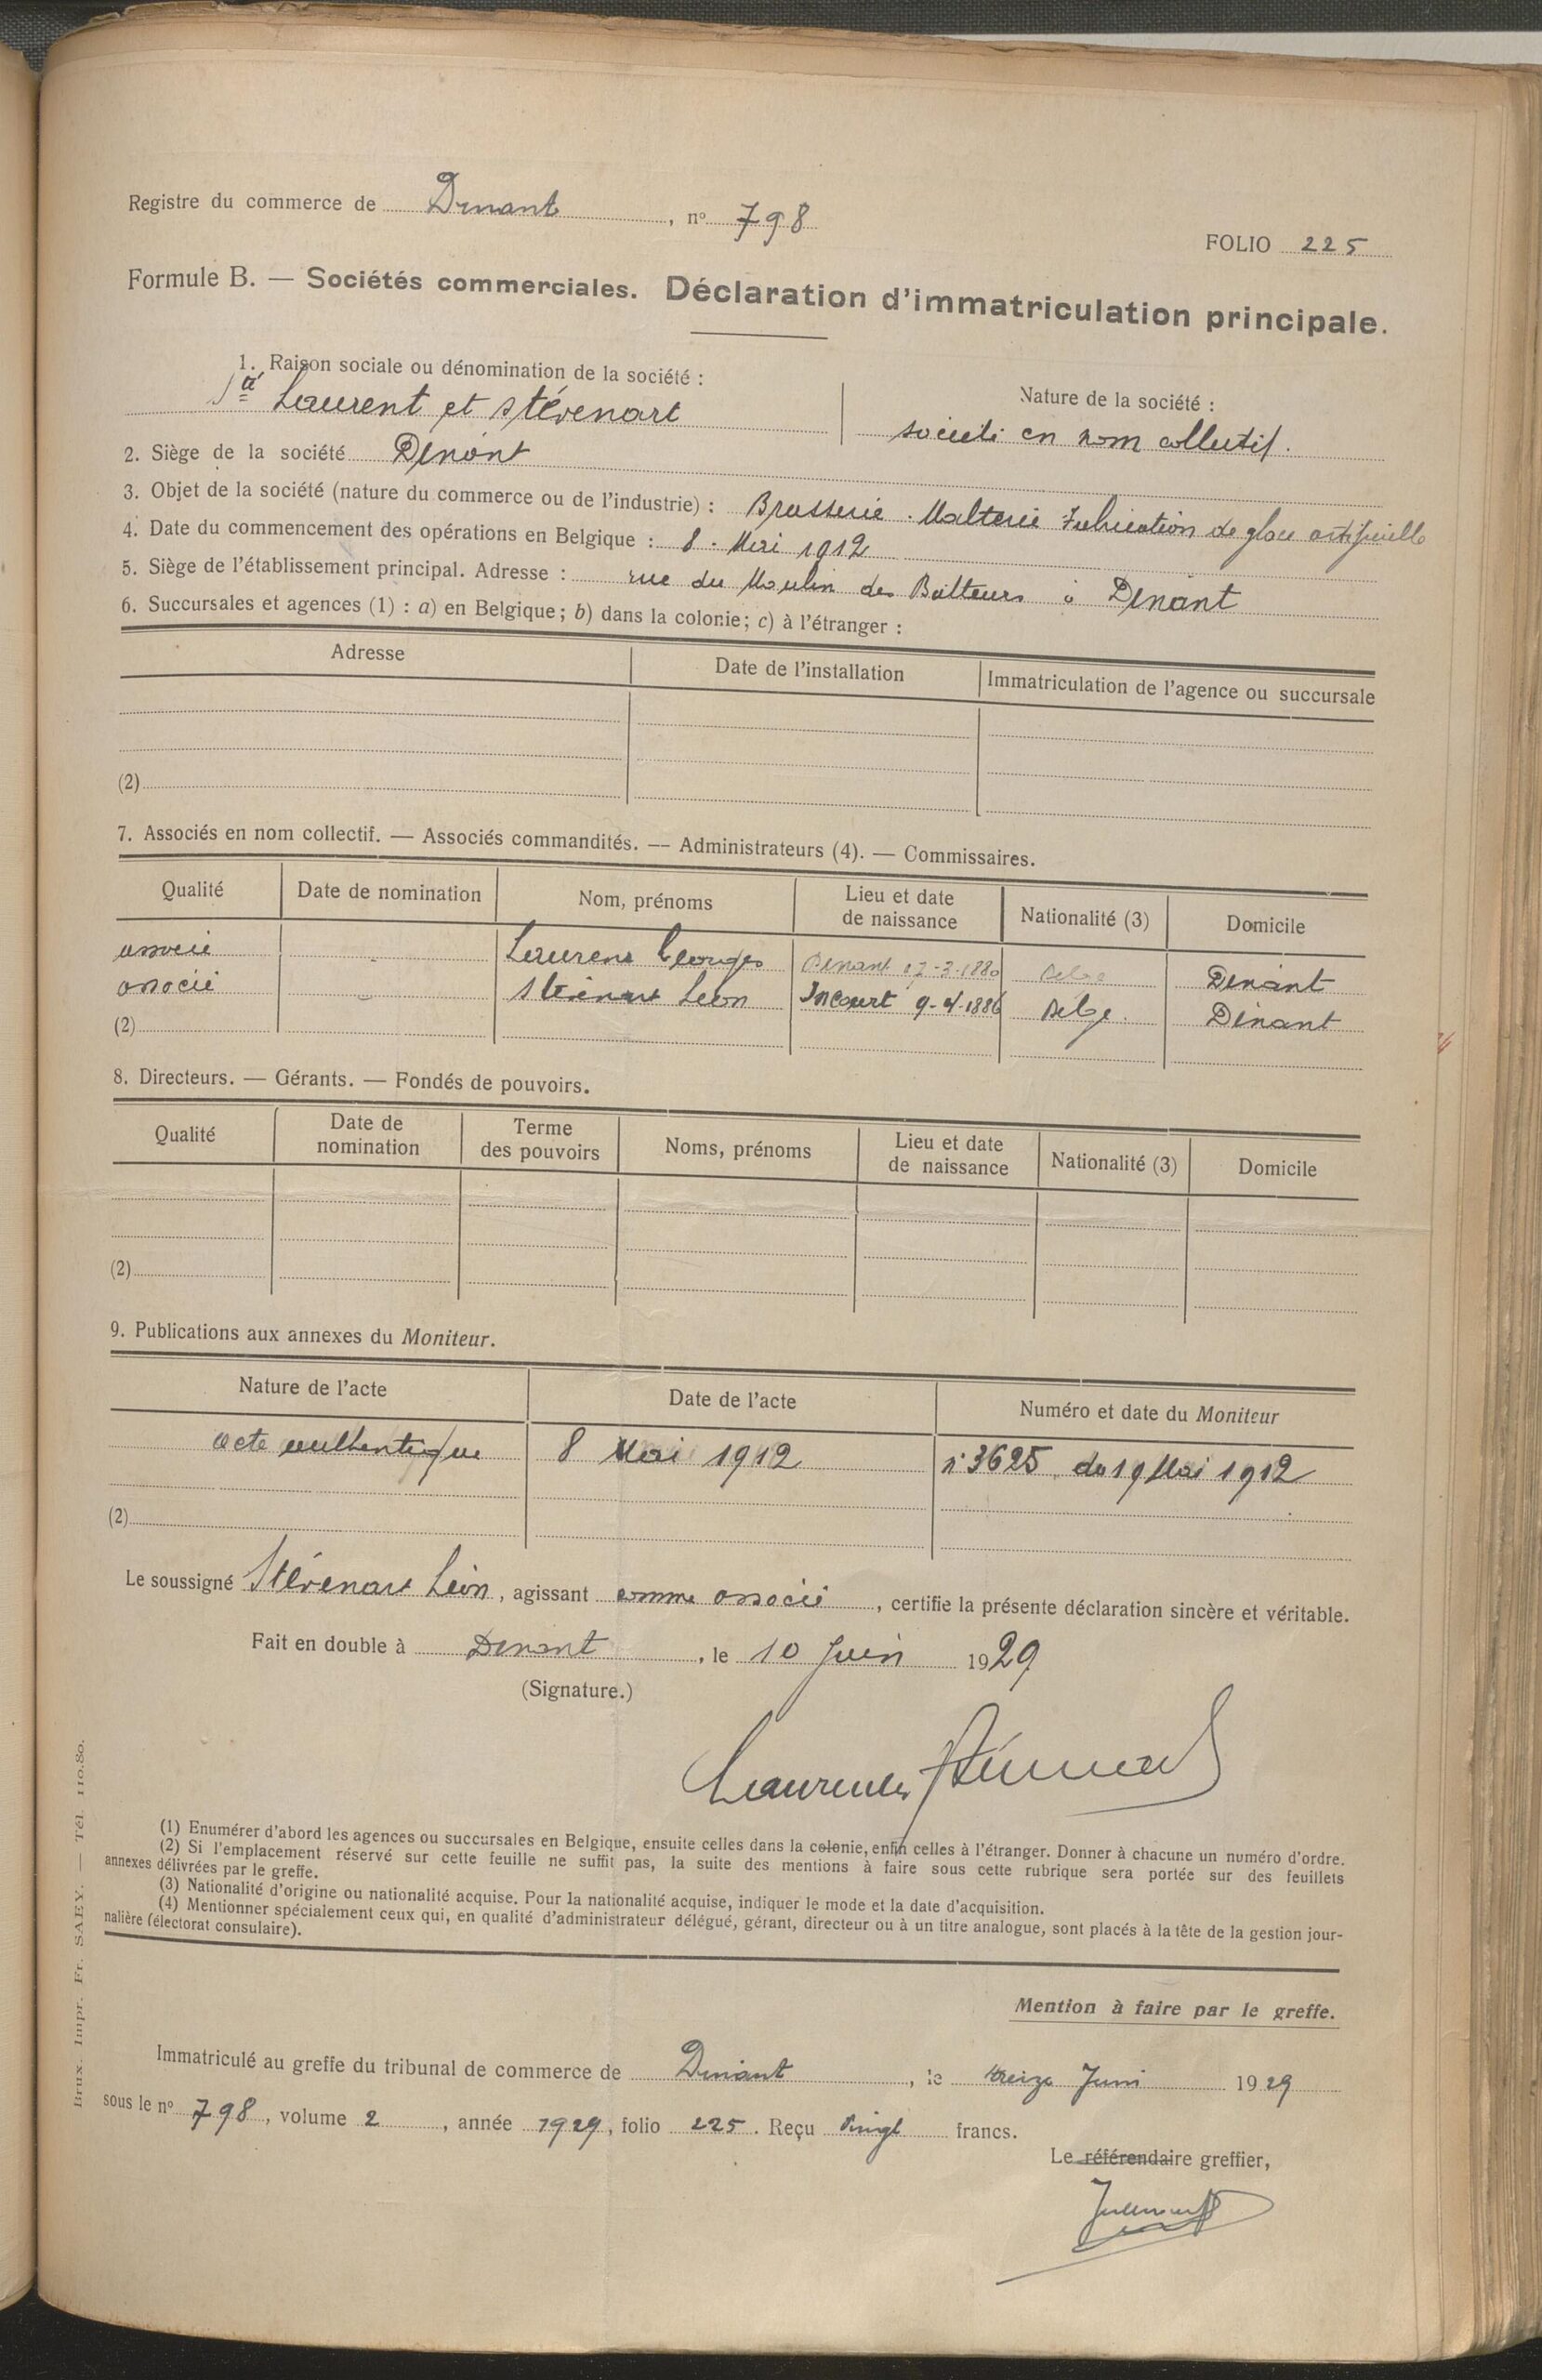 Registre du commerce de Dinant, nº 798
FOLIO 225
Formule B. — Sociétés commerciales. Déclaration d'immatriculation principale.
1. Raison sociale ou dénomination de la société :
Sté Laurent et Stévenart
Nature de la société :
société en nom collectif.
2. Siège de la société Dinant
3. Objet de la société (nature du commerce ou de l'industrie) : Brasserie. Malterie Fabrication de glace artificielle
4. Date du commencement des opérations en Belgique : 8. Mai 1912
5. Siège de l'établissement principal. Adresse : rue du Moulin des Batteurs à Dinant
6. Succursales et agences (1) : a) en Belgique; b) dans la colonie; c) à l'étranger :
Adresse Date de l'installation Immatriculation de l'agence ou succursale
(2)
7. Associés en nom collectif. — Associés commandités. — Administrateurs (4). — Commissaires.
Qualité Date de nomination Nom, prénoms Lieu et date de naissance Nationalité (3) Domicile
associé Laurent Georges Dinant 17-3-1880 Belge Dinant
associé Stévenart Léon Incourt 9-4-1886 Belge. Dinant
(2)
8. Directeurs. — Gérants. — Fondés de pouvoirs.
Qualité Date de nomination Terme des pouvoirs Noms, prénoms Lieu et date de naissance Nationalité (3) Domicile
(2)
9. Publications aux annexes du Moniteur.
Nature de l'acte Date de l'acte Numéro et date du Moniteur
acte authentique 8 Mai 1912 nº 3625 du 19 Mai 1912
(2)
Le soussigné Stévenart Léon, agissant comme associé, certifie la présente déclaration sincère et véritable.
Fait en double à Dinant, le 10 Juin 1929
(Signature.)
Laurent Stévenart
(1) Enumérer d'abord les agences ou succursales en Belgique, ensuite celles dans la colonie, enfin celles à l'étranger. Donner à chacune un numéro d'ordre.
(2) Si l'emplacement réservé sur cette feuille ne suffit pas, la suite des mentions à faire sous cette rubrique sera portée sur des feuillets
annexes délivrées par le greffe.
(3) Nationalité d'origine ou nationalité acquise. Pour la nationalité acquise, indiquer le mode et la date d'acquisition.
(4) Mentionner spécialement ceux qui, en qualité d'administrateur délégué, gérant, directeur ou à un titre analogue, sont placés à la tête de la gestion jour-
nalière (électorat consulaire).
Mention à faire par le greffe.
Immatriculé au greffe du tribunal de commerce de Dinant, le treize Juin 1929
sous le nº 798, volume 2, année 1929, folio 225. Reçu vingt francs.
Le référendaire greffier,
Brux. Impr. Fr. SAEY. — Tél. 110.80.